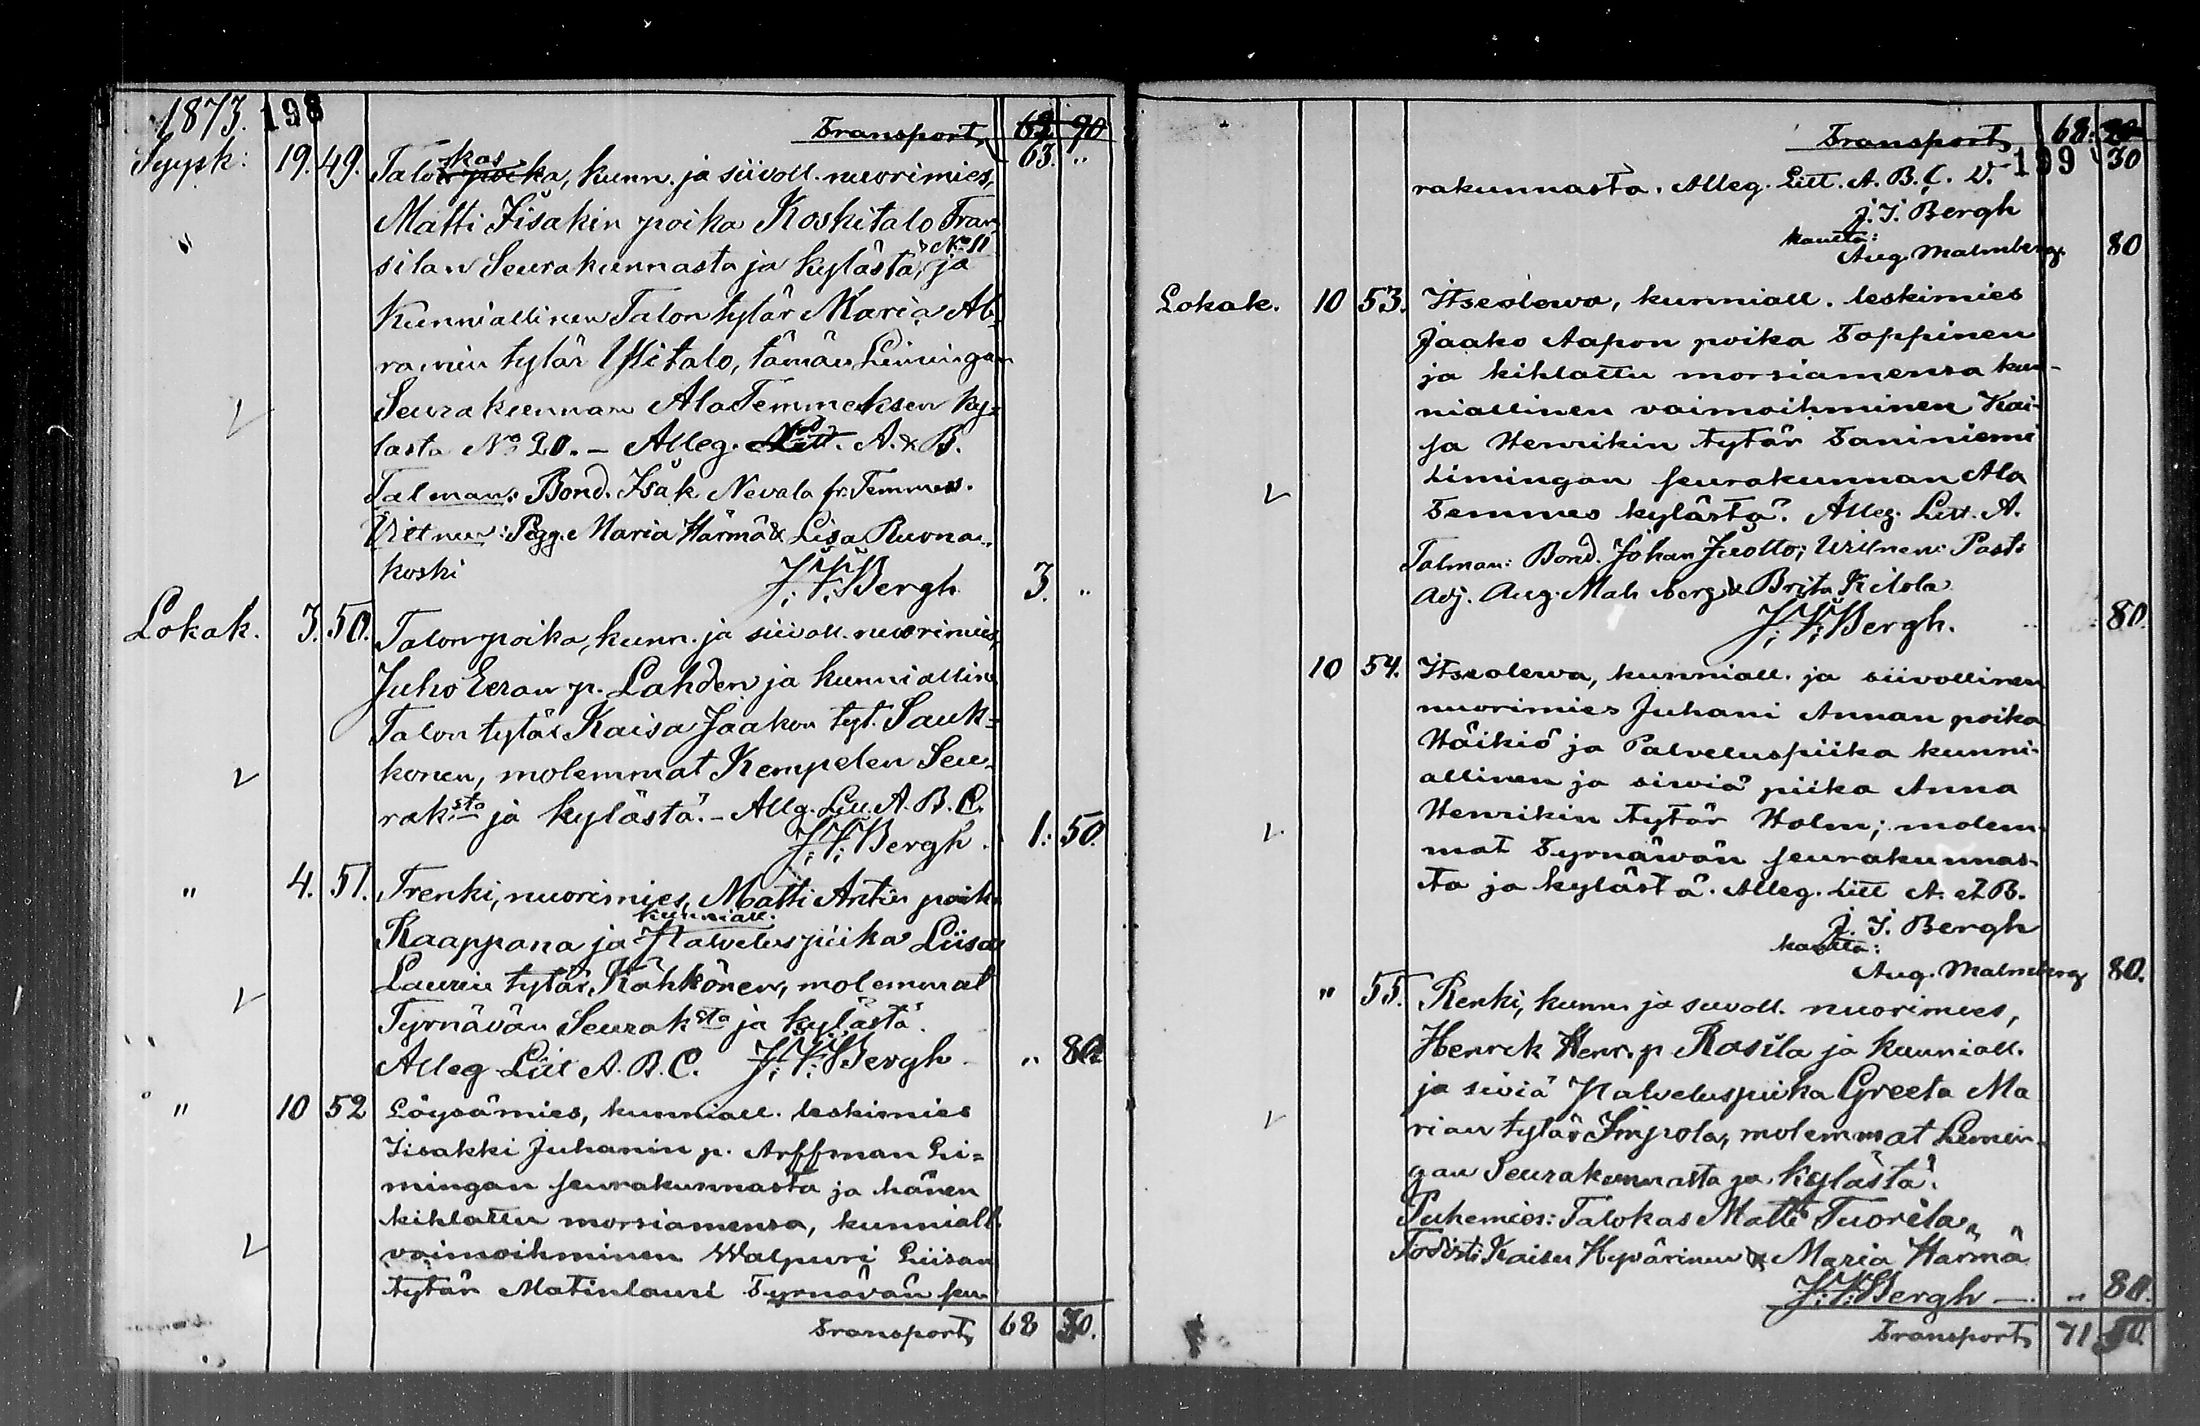 1873. 198
Transport, 62 90
Syysk: 19. 49. Talon poika kas, kunn. ja siivoll. nuorimies, 63. "
Matti Iisakin poika Koskitalo Fran-
" silan Seurakunnasta ja kylästä, No 11 ja
Kunniallinen Talon tytär Maria Ab-
ramin tytär Ylitalo, tämän Limingan
Seurakunnan Ala Temmeksen ky-
lästä No 20. - Alleg. Litt. A. & B.
Talman: Bond. Isak Nevala fr. Temmes.
Vitnen: Pigg. Maria Härmä & Lisa Ruona-
koski J. V. Bergh 3. "
Lokak. 3. 50. Talonpoika, kunn. ja siivoll. nuorimies,
Juho Eeran p. Lahden ja kunniallin.
Talon tytär Kaisa Jaakon tyt. Sauk-
konen, molemmat Kempelen Seu-
raksta ja kylästä. - Allg. Litt. A. B. C.
J. V. Bergh. 1: 50.
" 4. 51. Trenki, nuorimies, Matti Antin poik.
Kaappana ja kunniall. Palveluspiika Liisa
Laurin tytär Kähkönen, molemmat
Tyrnävän Seuraksta ja kylästä.
Alleg Litt A. B. C. J. V. Bergh " 80
" 10 52 Löysämies, kunniall. leskimies
Iisakki Juhanin p. Arffman Li=
mingan seurakunnasta ja hänen
kihlattu morsiamensa, kunniall.
vaimoihminen Walpuri Liisan
tytär Matinlauri Tyrnävän seu-
Transport, 68 30.
Transport, 68: 20
199 30
rakunnasta. Alleg. Litt. A. B. C. D.
J. V. Bergh
kautta:
Aug. Malmberg. 80
Lokak. 10 53. Itseolewa, kunniall. leskimies
Jaako Aapon poika Toppinen
ja kihlattu morsiamensa kun-
niallinen vaimoihminen Kai-
sa Henrikin tytär Taniniemi
Limingan seurakunnan Ala
Temmes kylästä. Alleg. Litt. A.
Talman: Bond. Johan Juotto; Witnen: Past:
Adj. Aug. Malmberg & Brita Kilola
J. V. Bergh. 80.
10 54. Itseolewa, kunniall. ja siivollinen
nuorimies Juhani Annan poika
Häikiö ja Palveluspiika kunni-
allinen ja siwiä piika Anna
Henrikin tytär Holm; molem-
mat Tyrnäwän seurakunnas-
ta ja kylästä. Alleg. Litt A. et B.
J. V. Bergh
kautta:
Aug. Malmberg 80.
" 55. Renki, kunn. ja siivoll. nuorimies,
Henrik Henr. p Rasila ja kunniall.
ja siviä Palveluspiika Greeta Ma
rian tytär Impola, molemmat Limin-
gan Seurakunnasta ja kylästä.
Puhemies: Talokas Matti Tuorila "
Todisti: Kaisa Hyvärinen & Maria Härmä
J. V. Bergh - " 80.
Transport, 71 50.